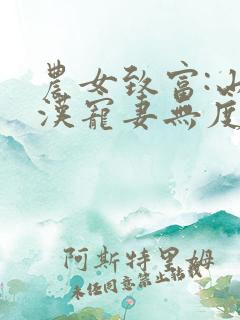 農女致富:山
漢寵妻無度
阿斯特里姆
未經同意禁止轉載